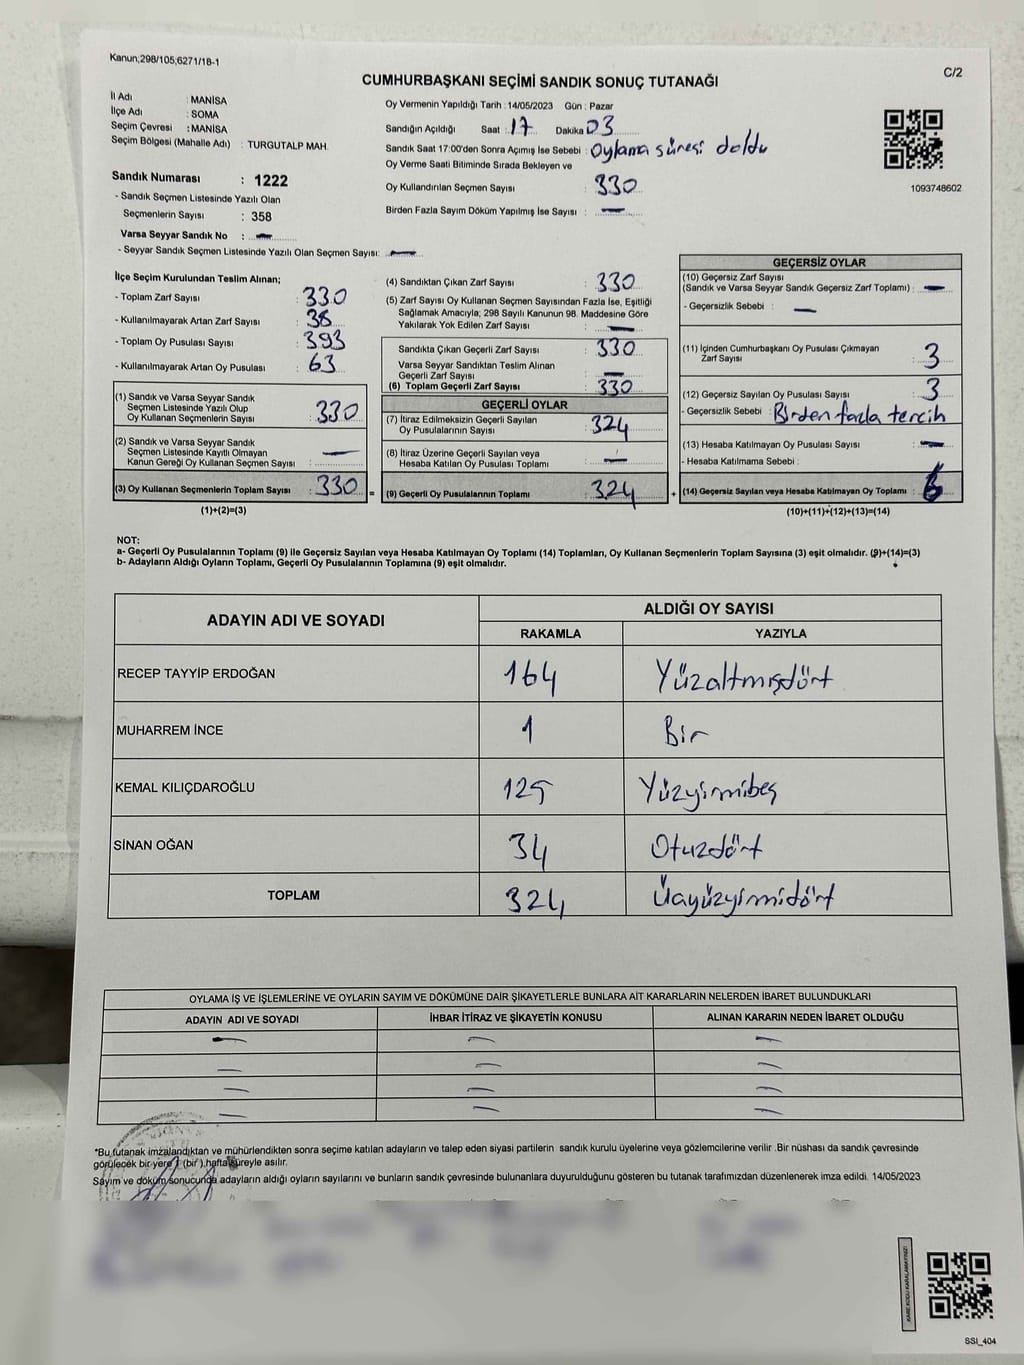 Kanun;298/105;6271/18-1
C/2
CUMHURBAŞKANI SEÇİMİ SANDIK SONUÇ TUTANAĞI
İl Adı : MANİSA
İlçe Adı : SOMA
Seçim Çevresi : MANİSA
Seçim Bölgesi (Mahalle Adı) : TURGUTALP MAH.
Sandık Numarası : 1222
- Sandık Seçmen Listesinde Yazılı Olan
Seçmenlerin Sayısı : 358
Varsa Seyyar Sandık No : —
- Seyyar Sandık Seçmen Listesinde Yazılı Olan Seçmen Sayısı: —
Oy Vermenin Yapıldığı Tarih : 14/05/2023 Gün : Pazar
Sandığın Açıldığı Saat : 17 Dakika 03
Sandık Saat 17:00'den Sonra Açımış İse Sebebi : Oylama süresi doldu
Oy Verme Saati Bitiminde Sırada Bekleyen ve
Oy Kullandırılan Seçmen Sayısı : 330
Birden Fazla Sayım Döküm Yapılmış İse Sayısı : —
1093748602
İlçe Seçim Kurulundan Teslim Alınan;
- Toplam Zarf Sayısı : 330
- Kullanılmayarak Artan Zarf Sayısı : 38
- Toplam Oy Pusulası Sayısı : 393
- Kullanılmayarak Artan Oy Pusulası : 63
(1) Sandık ve Varsa Seyyar Sandık
Seçmen Listesinde Yazılı Olup
Oy Kullanan Seçmenlerin Sayısı : 330
(2) Sandık ve Varsa Seyyar Sandık
Seçmen Listesinde Kayıtlı Olmayan
Kanun Gereği Oy Kullanan Seçmen Sayısı : —
(3) Oy Kullanan Seçmenlerin Toplam Sayısı : 330 =
(1)+(2)=(3)
(4) Sandıktan Çıkan Zarf Sayısı : 330
(5) Zarf Sayısı Oy Kullanan Seçmen Sayısından Fazla İse, Eşitliği
Sağlamak Amacıyla; 298 Sayılı Kanunun 98. Maddesine Göre
Yakılarak Yok Edilen Zarf Sayısı : —
Sandıkta Çıkan Geçerli Zarf Sayısı : 330
Varsa Seyyar Sandıktan Teslim Alınan
Geçerli Zarf Sayısı : —
(6) Toplam Geçerli Zarf Sayısı : 330
GEÇERLİ OYLAR
(7) İtiraz Edilmeksizin Geçerli Sayılan
Oy Pusulalarının Sayısı : 324
(8) İtiraz Üzerine Geçerli Sayılan veya
Hesaba Katılan Oy Pusulası Toplamı : —
(9) Geçerli Oy Pusulalarının Toplamı : 324 +
GEÇERSİZ OYLAR
(10) Geçersiz Zarf Sayısı
(Sandık ve Varsa Seyyar Sandık Geçersiz Zarf Toplamı) : —
- Geçersizlik Sebebi : —
(11) İçinden Cumhurbaşkanı Oy Pusulası Çıkmayan
Zarf Sayısı : 3
(12) Geçersiz Sayılan Oy Pusulası Sayısı : 3
- Geçersizlik Sebebi : Birden fazla tercih
(13) Hesaba Katılmayan Oy Pusulası Sayısı : —
- Hesaba Katılmama Sebebi :
(14) Geçersiz Sayılan veya Hesaba Katılmayan Oy Toplamı : 6
(10)+(11)+(12)+(13)=(14)
NOT:
a- Geçerli Oy Pusulalarının Toplamı (9) ile Geçersiz Sayılan veya Hesaba Katılmayan Oy Toplamı (14) Toplamları, Oy Kullanan Seçmenlerin Toplam Sayısına (3) eşit olmalıdır. (9)+(14)=(3)
b- Adayların Aldığı Oyların Toplamı, Geçerli Oy Pusulalarının Toplamına (9) eşit olmalıdır.
ADAYIN ADI VE SOYADI ALDIĞI OY SAYISI
RAKAMLA YAZIYLA
RECEP TAYYİP ERDOĞAN 164 Yüzaltmışdört
MUHARREM İNCE 1 Bir
KEMAL KILIÇDAROĞLU 125 Yüzyirmibeş
SİNAN OĞAN 34 Otuzdört
TOPLAM 324 Üçyüzyirmidört
OYLAMA İŞ VE İŞLEMLERİNE VE OYLARIN SAYIM VE DÖKÜMÜNE DAİR ŞİKAYETLERLE BUNLARA AİT KARARLARIN NELERDEN İBARET BULUNDUKLARI
ADAYIN ADI VE SOYADI İHBAR İTİRAZ VE ŞİKAYETİN KONUSU ALINAN KARARIN NEDEN İBARET OLDUĞU
— — —
— — —
— — —
— — —
*Bu tutanak imzalandıktan ve mühürlendikten sonra seçime katılan adayların ve talep eden siyasi partilerin sandık kurulu üyelerine veya gözlemcilerine verilir .Bir nüshası da sandık çevresinde
görülecek bir yere 1 (bir ) hafta süreyle asılır.
Sayım ve döküm sonucunda adayların aldığı oyların sayılarını ve bunların sandık çevresinde bulunanlara duyurulduğunu gösteren bu tutanak tarafımızdan düzenlenerek imza edildi. 14/05/2023
KARE KODU KARALAMAYINIZ!
SSI_404